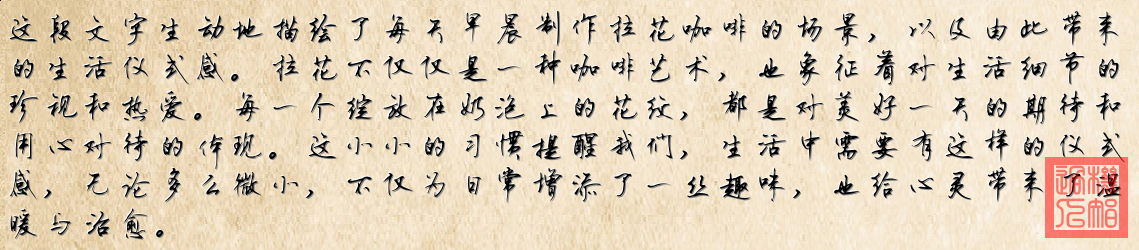 这段文字生动地描绘了每天早晨制作拉花咖啡的场景，以及由此带来
的生活仪式感。拉花不仅仅是一种咖啡艺术，也象征着对生活细节的
珍视和热爱。每一个绽放在奶泡上的花纹，都是对美好一天的期待和
用心对待的体现。这小小的习惯提醒我们，生活中需要有这样的仪式
感，无论多么微小，不仅为日常增添了一丝趣味，也给心灵带来了温
暖与治愈。